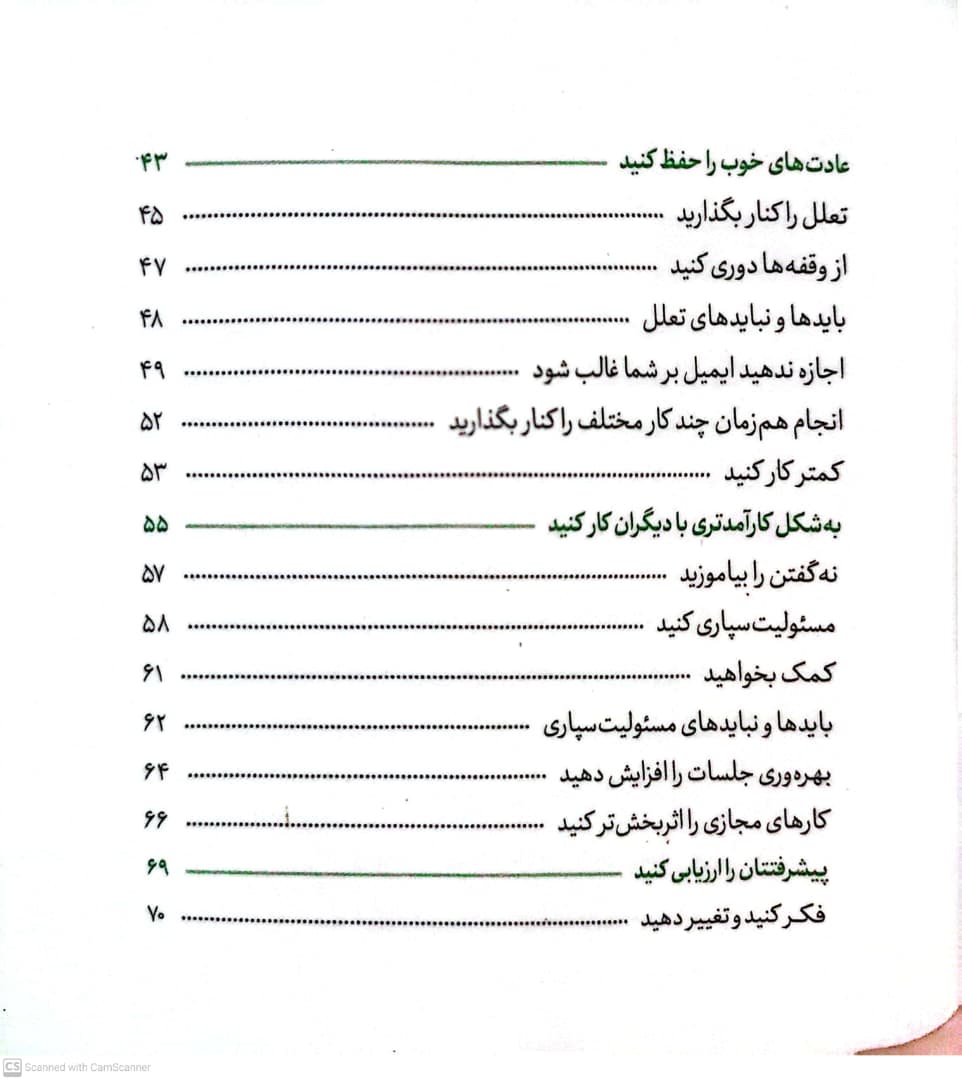 عادت‌های خوب را حفظ کنید ۴۳
تعلل را کنار بگذارید ۴۵
از وقفه‌ها دوری کنید ۴۷
بایدها و نبایدهای تعلل ۴۸
اجازه ندهید ایمیل بر شما غالب شود ۴۹
انجام هم‌زمان چند کار مختلف را کنار بگذارید ۵۲
کمتر کار کنید ۵۳
به‌شکل کارآمدتری با دیگران کار کنید ۵۵
نه‌گفتن را بیاموزید ۵۷
مسئولیت‌سپاری کنید ۵۸
کمک بخواهید ۶۱
بایدها و نبایدهای مسئولیت‌سپاری ۶۲
بهره‌وری جلسات را افزایش دهید ۶۴
کارهای مجازی را اثربخش‌تر کنید ۶۶
پیشرفتتان را ارزیابی کنید ۶۹
فکر کنید و تغییر دهید ۷۰
CS Scanned with CamScanner